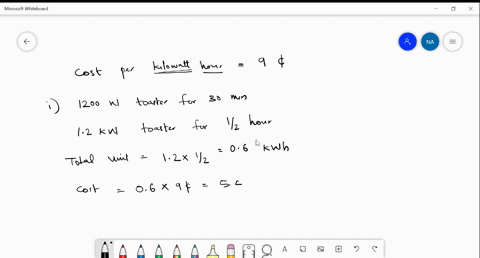 Microsoft Whiteboard
NA
Cost per kilowatt hour = 9 ¢
i) 1200 W toaster for 30 min
1.2 kW toaster for 1/2 hour
Total unit = 1.2 x 1/2 = 0.6 kWh
Cost = 0.6 x 9¢ = 5
A